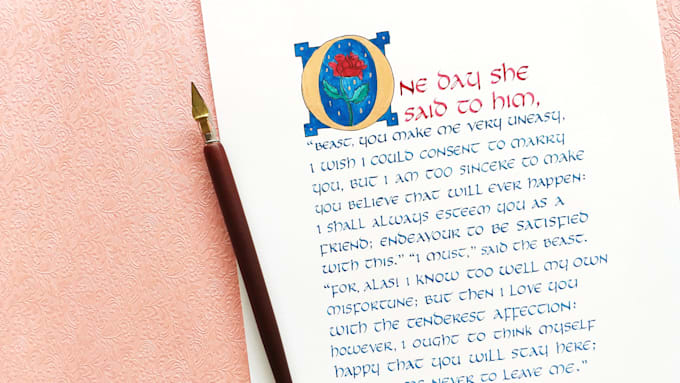 One day she
said to him,
“Beast, you make me very uneasy.
I wish I could consent to marry
you, but I am too sincere to make
you believe that will ever happen:
I shall always esteem you as a
friend; endeavour to be satisfied
with this.” “I must,” said the Beast.
“For, alas! I know too well my own
misfortune; but then I love you
with the tenderest affection:
however, I ought to think myself
happy that you will stay here;
me never to leave me.”